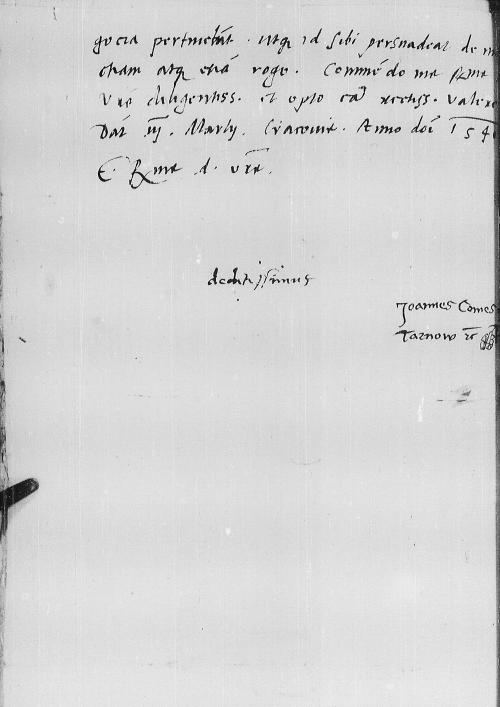 gocia pertinebūt. utq̨ id sibi persuadeat de m
cham atq̨ etiā rogo. Commēdo me Rme
Vrē diligentiss. et opto eā rectiss. valere
Dat iij. Martij. Cracovie. Anno doī 154
E. Rme d. vrē.
deditissimus
Joannes Comes
Tarnow